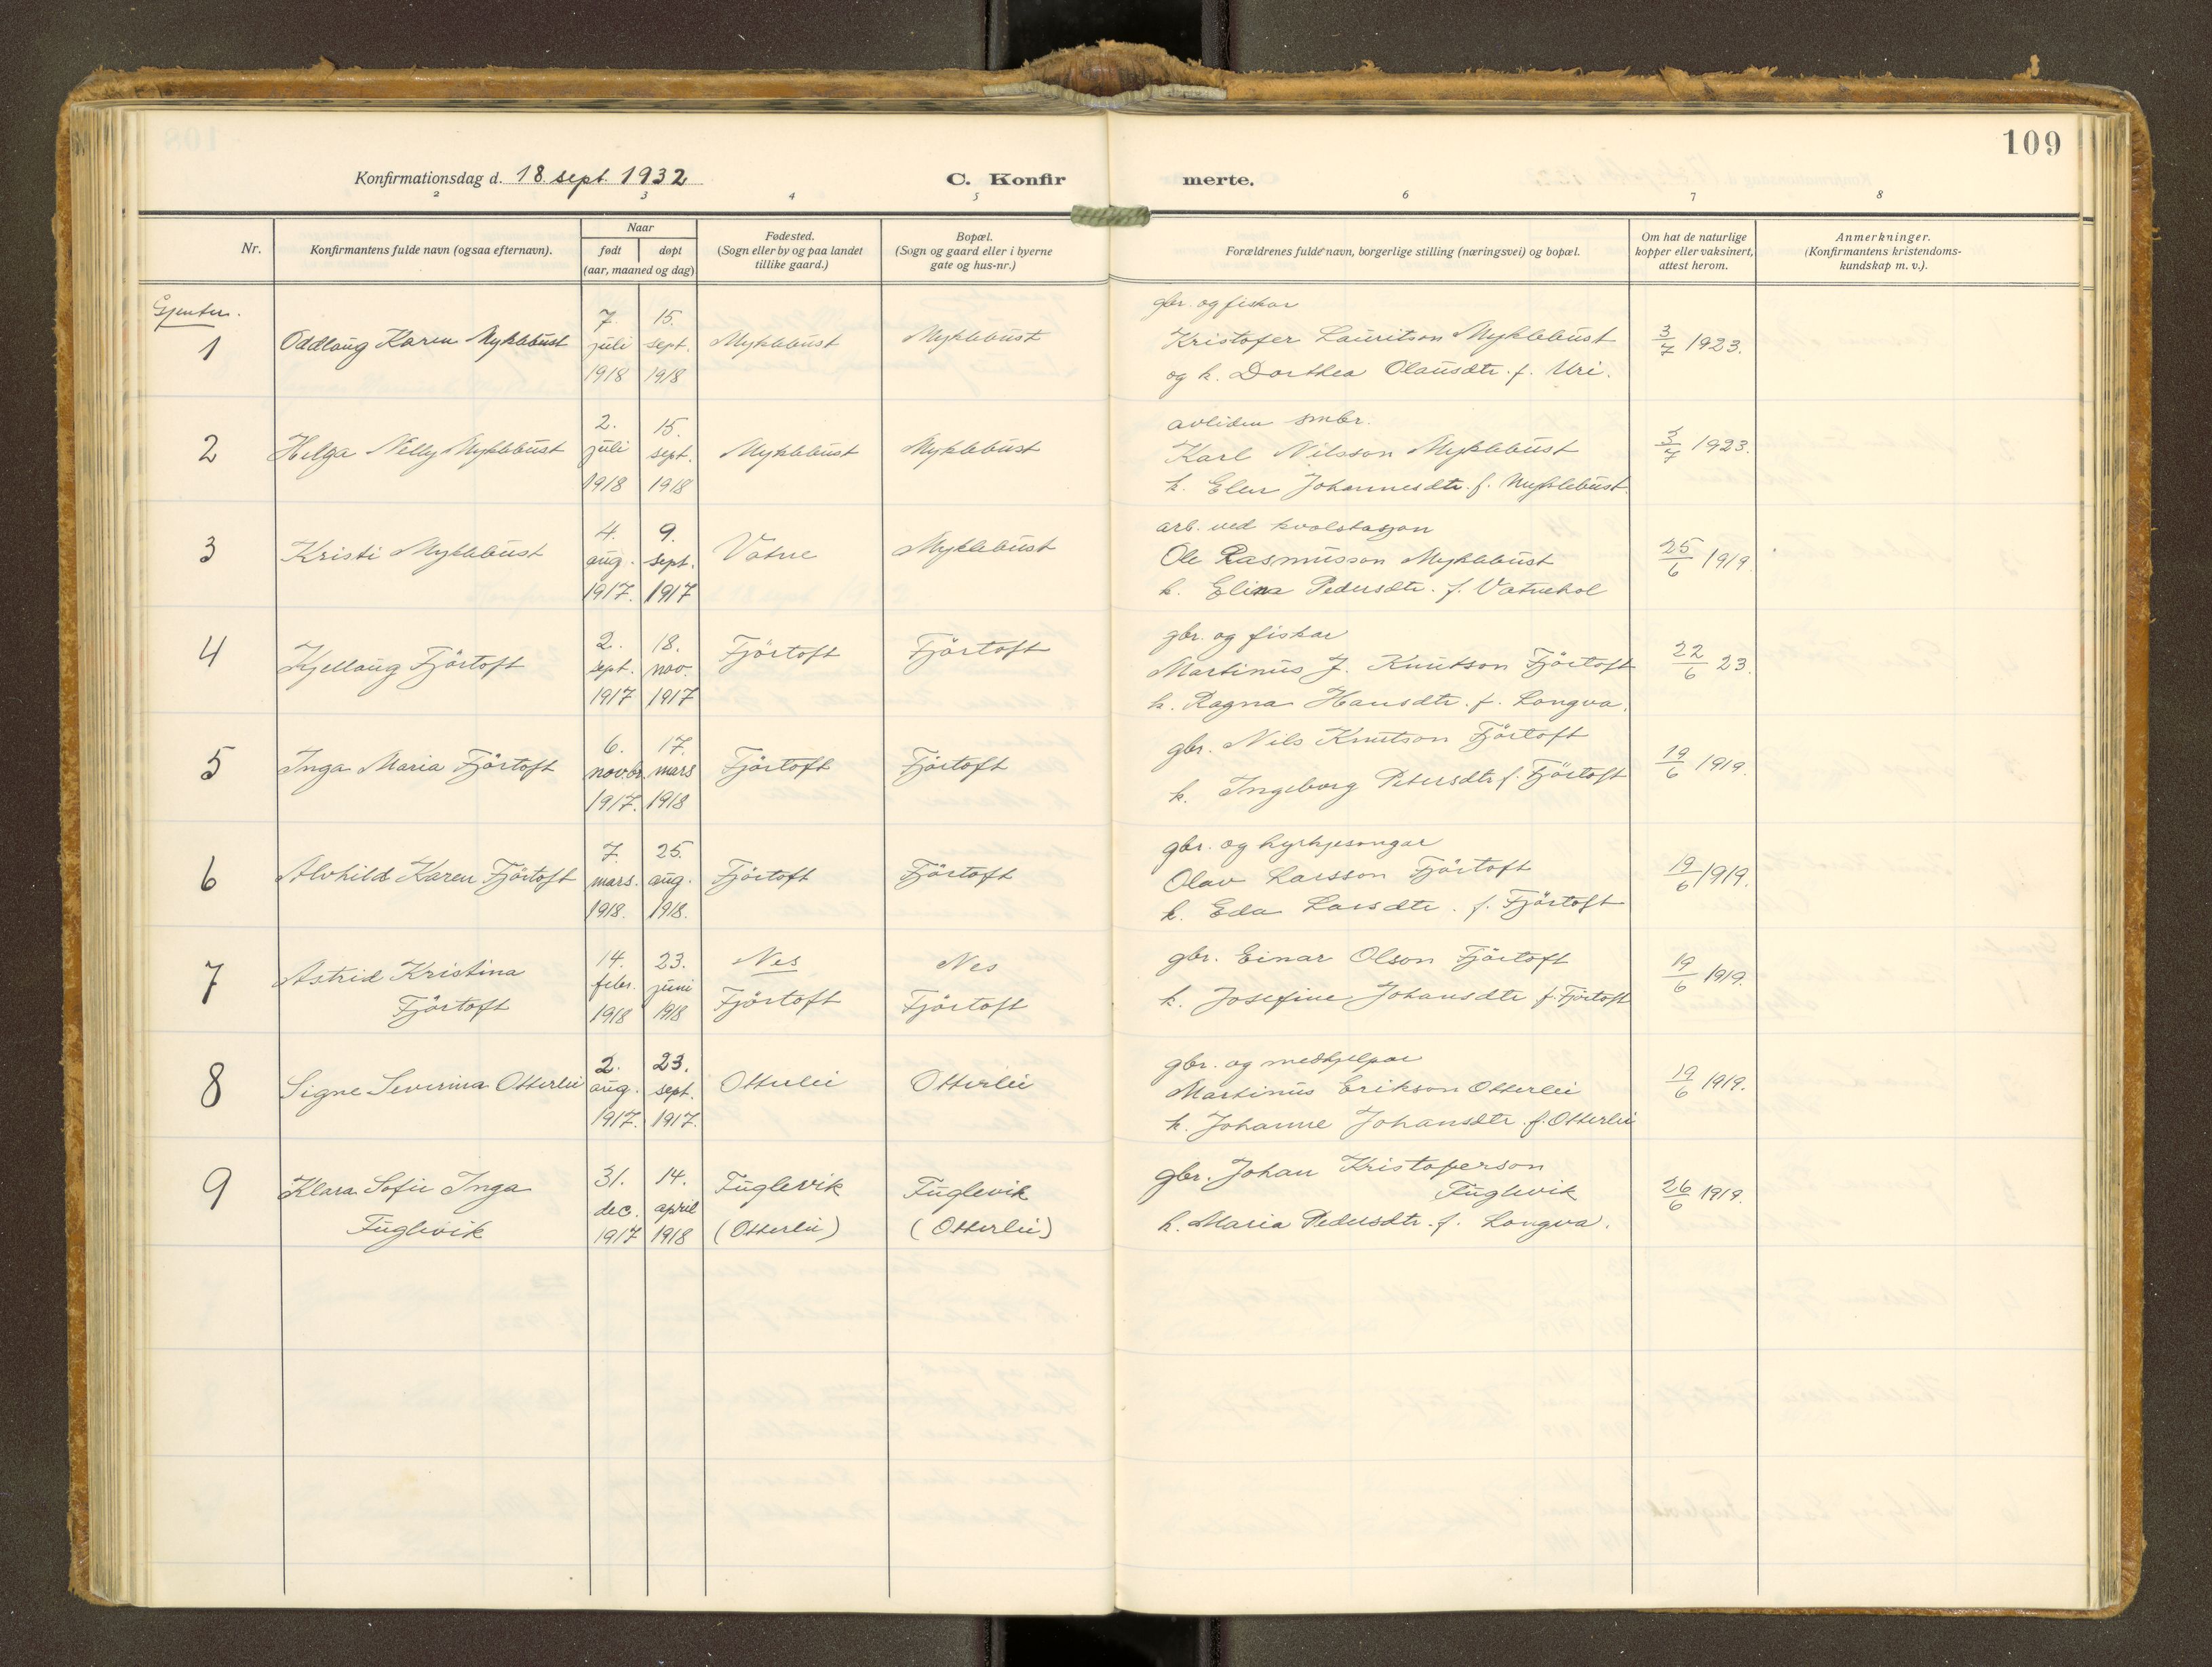 109
Konfirmationsdag d. 18 sept. 1932
C. Konfir merte.
2 3 4 5 6 7 8
Nr.
Konfirmantens fulde navn (ogsaa efternavn).
Naar
født døpt
(aar, maaned og dag)
Fødested.
(Sogn eller by og paa landet
tillike gaard.)
Bopæl.
(Sogn og gaard eller i byerne
gate og hus-nr.)
Forældrenes fulde navn, borgerlige stilling (næringsvei) og bopæl.
Om hat de naturlige
kopper eller vaksinert,
attest herom.
Anmerkninger.
(Konfirmantens kristendoms-
kundskap m. v.).
Gjentur.
1
Oddlaug Karen Myklebust
7. juli 1918
15. sept. 1918
Myklebust
Myklebust
gbr. og fiskar
Kristofer Lauritson Myklebust
og k. Dorthea Olausdtr. f. Uri.
3/7 1923.
2
Helga Nelly Myklebust
2. juli 1918
15. sept. 1918
Myklebust
Myklebust
avliden smbr.
Karl Nilsson Myklebust
k. Elen Johannesdtr. f. Myklebust.
3/7 1923.
3
Kristi Myklebust
4. aug. 1917.
9. sept. 1917
Vatne
Myklebust
arb. ved kvalstasjon
Ole Rasmusson Myklebust
k. Elina Pedersdtr. f. Vatnehol
25/6 1919.
4
Kjellaug Fjörtoft
2. sept. 1917
18. nov. 1917
Fjörtoft
Fjörtoft
gbr. og fiskar
Martinus J. Knutson Fjörtoft
k. Ragna Hansdtr. f. Longva.
22/6 23.
5
Inga Maria Fjörtoft
6. novbr. 1917.
17. mars 1918
Fjörtoft
Fjörtoft
gbr. Nils Knutson Fjörtoft
k. Ingeborg Petersdtr. f. Fjörtoft
19/6 1919.
6
Alvhild Karen Fjörtoft
7. mars. 1918.
25. aug. 1918.
Fjörtoft
Fjörtoft
gbr. og kyrkjesongar
Olav Larsson Fjörtoft
k. Eda Larsdtr. f. Fjörtoft
19/6 1919.
7
Astrid Kristina
Fjörtoft
14. febr. 1918
23. juni 1918
Nes
Fjörtoft
Nes
Fjörtoft
gbr. Einar Olson Fjörtoft
k. Josefine Johansdtr f. Fjörtoft
19/6 1919.
8
Signe Severina Otterlei
2. aug. 1917.
23. sept. 1917.
Otterlei
Otterlei
gbr. og medhjelpar
Martinus Erikson Otterlei
k. Johanne Johansdtr. f. Otterlei
19/6 1919.
9
Klara Sofie Inga
Fuglevik
31. dec. 1917
14. april 1918
Fuglevik
(Otterlei)
Fuglevik
(Otterlei)
gbr. Johan Kristoferson
Fuglevik
k. Maria Pedersdtr. f. Longva.
26/6 1919.